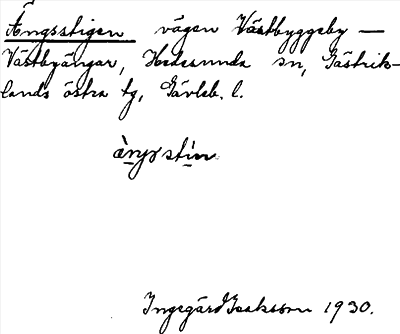 Ängsstigen vägen Västbyggeby —
Västbyängar, Hedesunda sn, Gästrik-
lands östra tg, Gävleb. l.
Ingegärd Isaksson 1930.